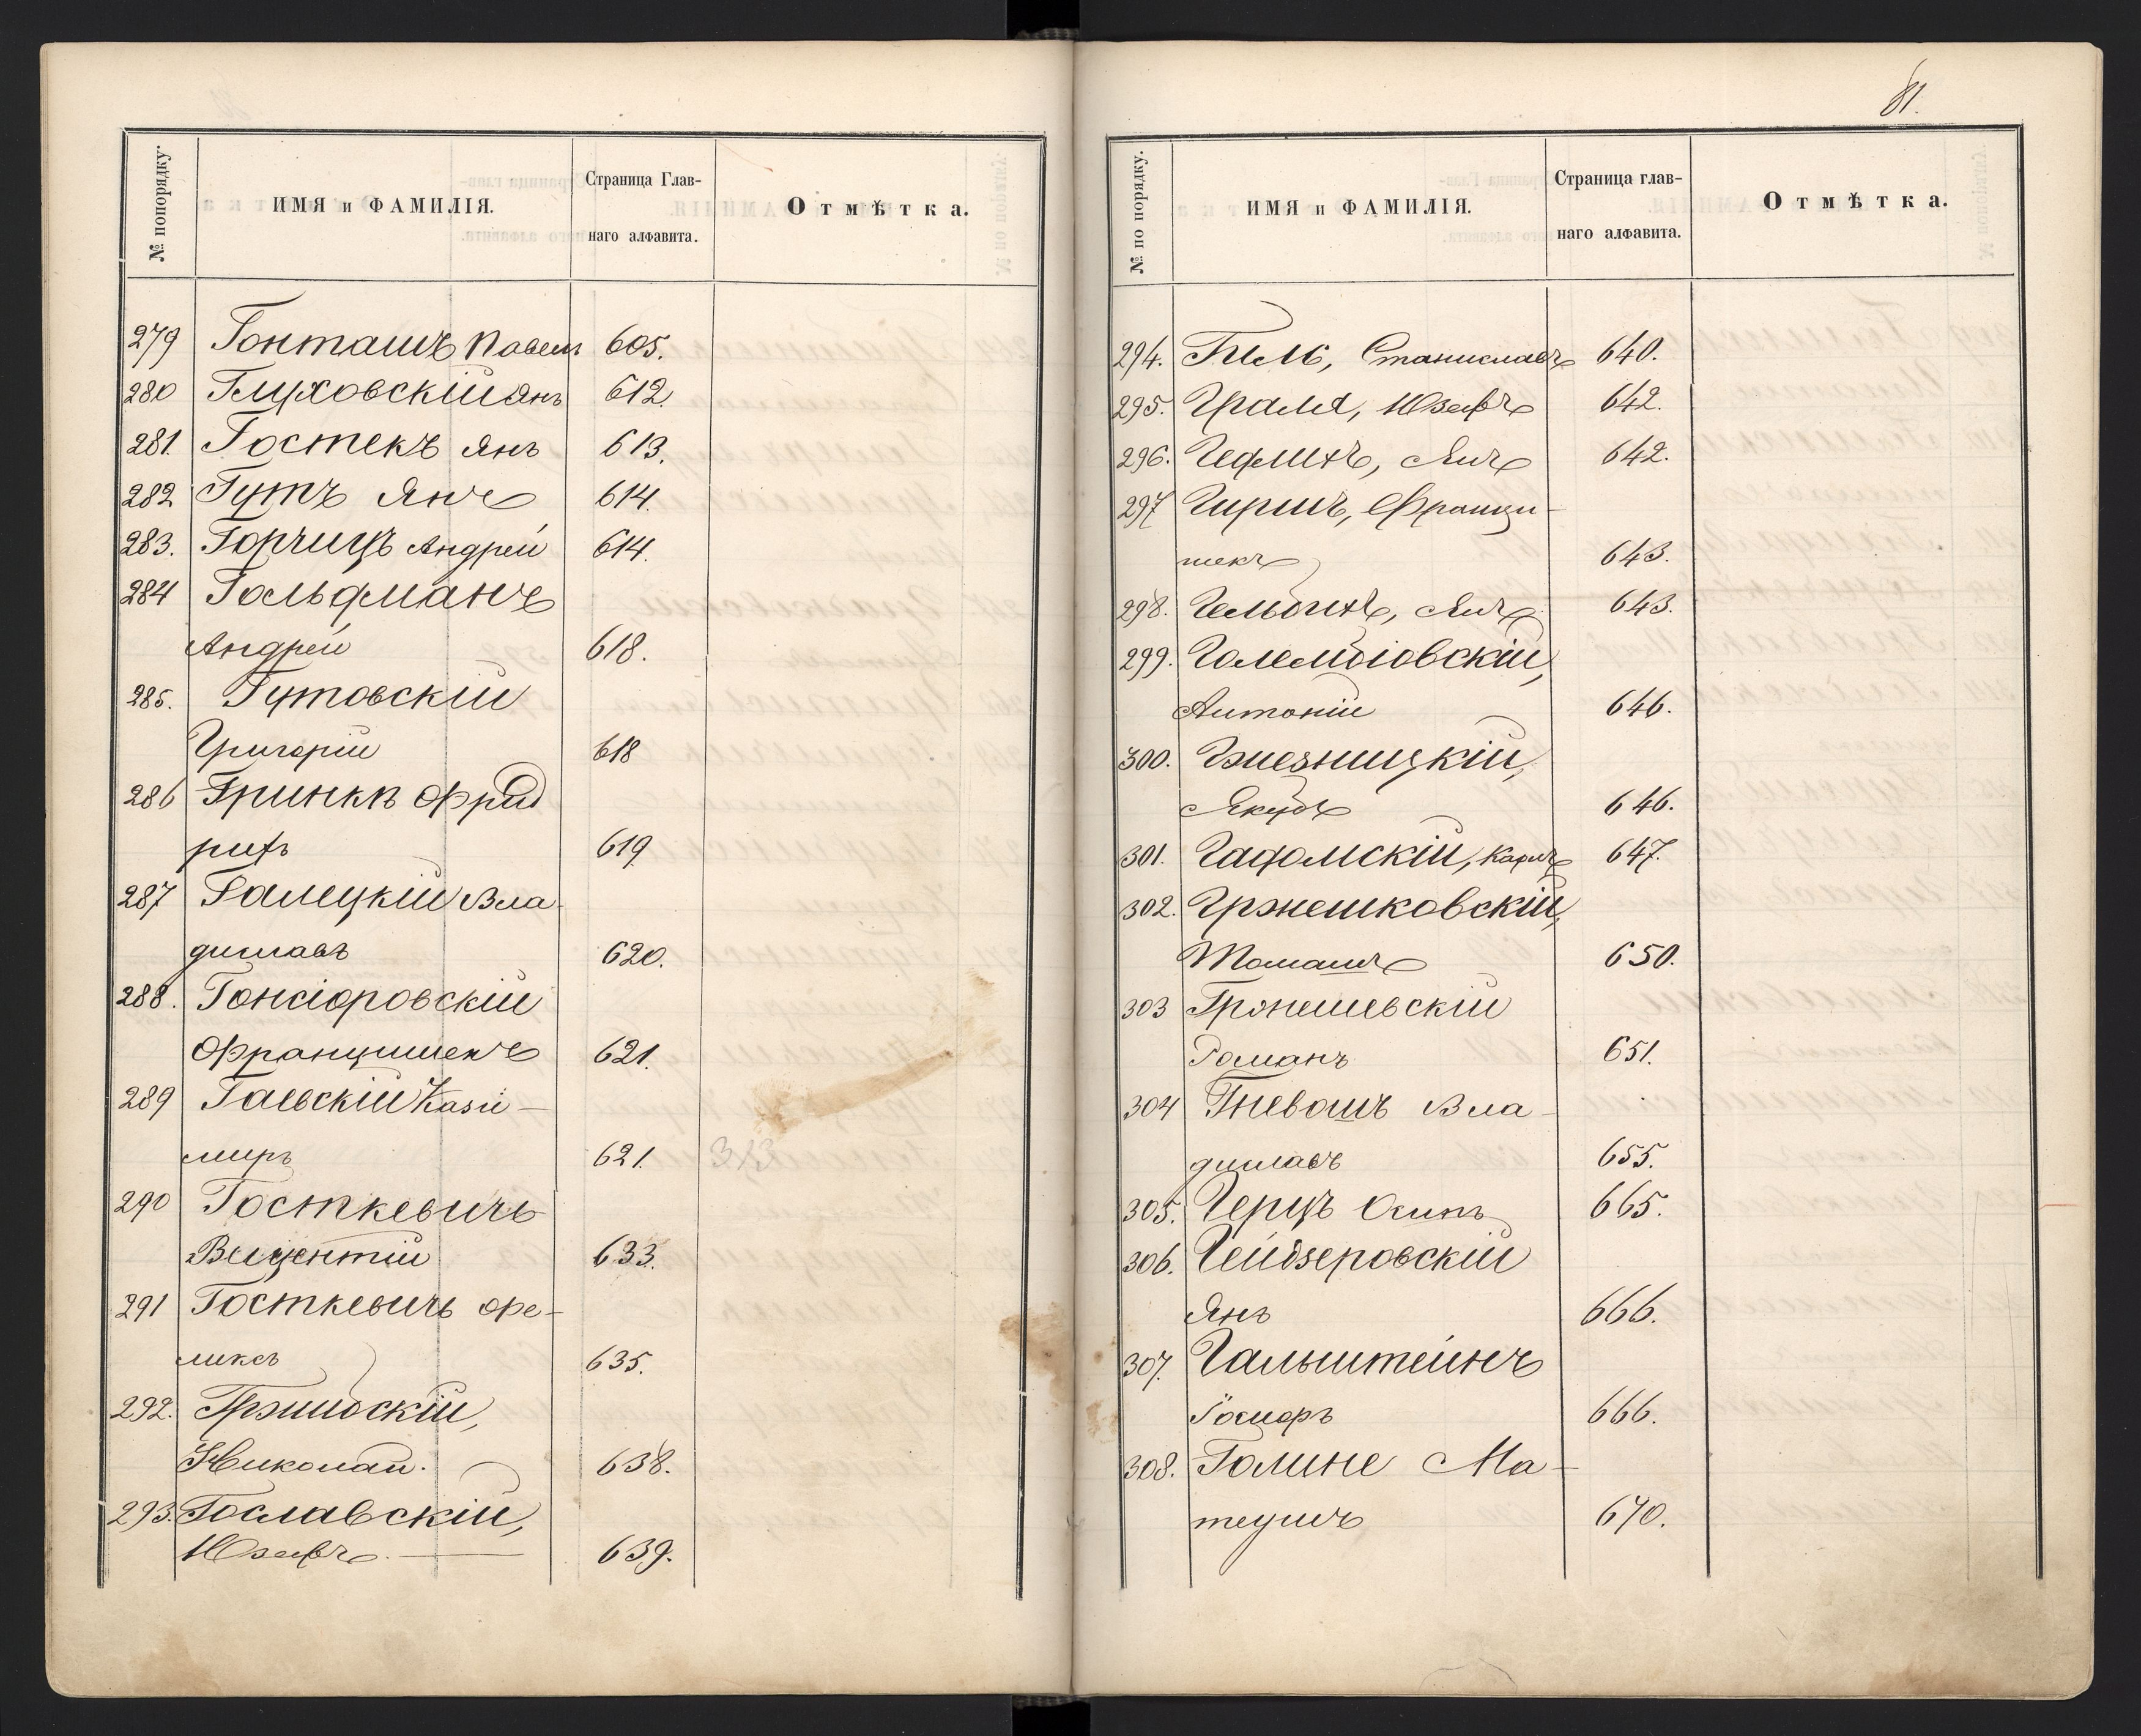 № попорядку.
ИМЯ и ФАМИЛІЯ.
Страница Глав-
наго алфавита.
Отмѣтка.
279 Гонташъ Павелъ 605.
280 Глуховскій Янъ 612.
281. Гостекъ Янъ 613.
282 Гутъ Янъ 614.
283. Горчицъ Андрей 614.
284 Гольфманъ
Андрей 618.
285. Гутовскій
Григорій 618
286 Гринкъ Фрид
рихъ 619
287 Галецкій Вла-
диславъ 620.
288. Гонсіоровскій
Францишекъ 621.
289 Гаевскій Кази-
миръ 621. 313
290 Госткевичъ
Вецентій 633.
291 Госткевичъ Фе-
ликсъ 635.
292. Грэмбскій,
Николай. 638.
293. Гославскій,
Юзефъ. 639.
81.
№ по порядку.
ИМЯ и ФАМИЛІЯ.
Страница глав-
наго алфавита.
Отмѣтка.
294. Гиль, Станиславъ 640.
295. Граля, Юзефъ 642.
296. Гефлихъ, Янъ 642.
297 Гиршъ, Франци-
шекъ 643.
298. Гельбихъ, Янъ 643.
299. Голембіовскій,
Антоній 646.
300. Гнезницкій,
Якубъ 646.
301. Гадомскій, Карлъ 647.
302. Гржешковскій,
Томашъ 650.
303 Гржешевскій
Романъ 651.
304 Гневошъ Вла-
диславъ 655.
305. Герцъ Осипъ 665.
306. Гейдзеровскій
Янъ 666.
307. Гальштейнъ
666.
308. Голине Ма-
теушъ 670.